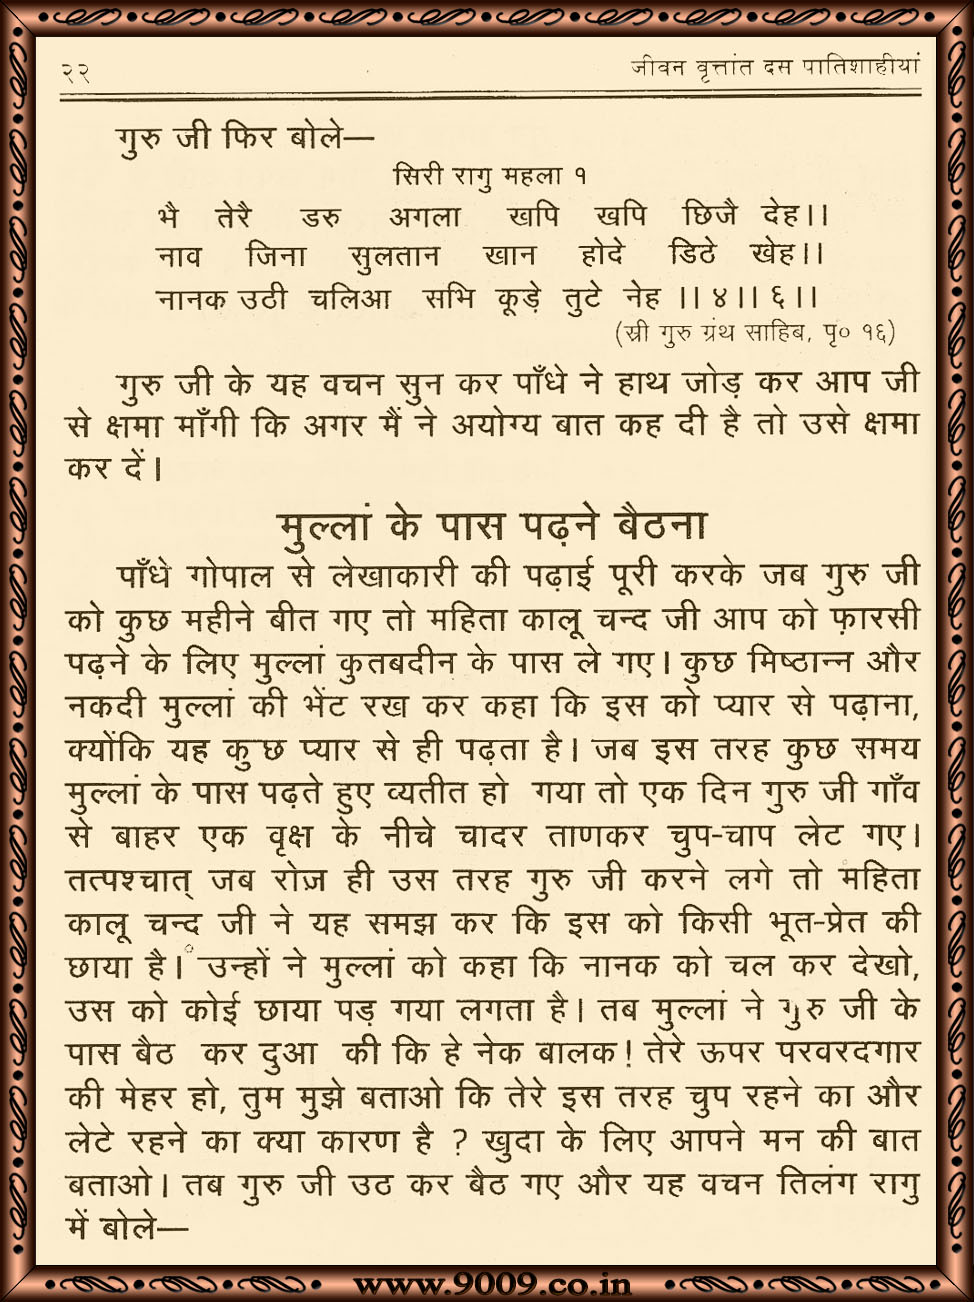 २२ जीवन वृत्तांत दस पातिशाहीयां
गुरु जी फिर बोले—
सिरी रागु महला १
भै तेरै डरु अगला खपि खपि छिजै देह।।
नाव जिना सुलतान खान होदे डिठे खेह।।
नानक उठी चलिआ सभि कूड़े तुटे नेह ।।४।।६।।
(स्री गुरु ग्रंथ साहिब, पृ० १६)
गुरु जी के यह वचन सुन कर पाँधे ने हाथ जोड़ कर आप जी
से क्षमा माँगी कि अगर मैं ने अयोग्य बात कह दी है तो उसे क्षमा
कर दें।
मुल्लां के पास पढ़ने बैठना
पाँधे गोपाल से लेखाकारी की पढ़ाई पूरी करके जब गुरु जी
को कुछ महीने बीत गए तो महिता कालू चन्द जी आप को फ़ारसी
पढ़ने के लिए मुल्लां कुतबदीन के पास ले गए। कुछ मिष्ठान्न और
नकदी मुल्लां की भेंट रख कर कहा कि इस को प्यार से पढ़ाना,
क्योंकि यह कुछ प्यार से ही पढ़ता है। जब इस तरह कुछ समय
मुल्लां के पास पढ़ते हुए व्यतीत हो गया तो एक दिन गुरु जी गाँव
से बाहर एक वृक्ष के नीचे चादर ताणकर चुप-चाप लेट गए।
तत्पश्चात् जब रोज़ ही उस तरह गुरु जी करने लगे तो महिता
कालू चन्द जी ने यह समझ कर कि इस को किसी भूत-प्रेत की
छाया है। उन्हों ने मुल्लां को कहा कि नानक को चल कर देखो,
उस को कोई छाया पड़ गया लगता है। तब मुल्लां ने गुरु जी के
पास बैठ कर दुआ की कि हे नेक बालक! तेरे ऊपर परवरदगार
की मेहर हो, तुम मुझे बताओ कि तेरे इस तरह चुप रहने का और
लेटे रहने का क्या कारण है ? खुदा के लिए आपने मन की बात
बताओ। तब गुरु जी उठ कर बैठ गए और यह वचन तिलंग रागु
में बोले—
www.9009.co.in